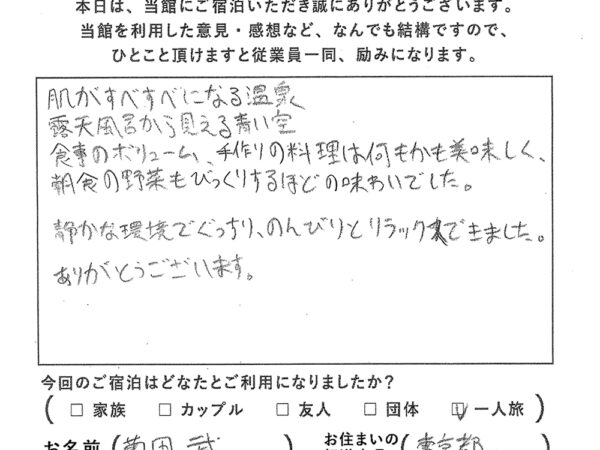 本日は、当館にご宿泊いただき誠にありがとうございます。
当館を利用した意見・感想など、なんでも結構ですので、
ひとこと頂けますと従業員一同、励みになります。
肌がすべすべになる温泉
露天風呂から見える青い空
食事のボリューム、手作りの料理は何もかも美味しく、
朝食の野菜もびっくりするほどの味わいでした。
静かな環境でぐっすり、のんびりとリラックスできました。
ありがとうございます。
今回のご宿泊はどなたとご利用になりましたか?
(□ 家族 □ カップル □ 友人 □ 団体 ☑ 一人旅)
お名前 ( 武 ) お住まいの ( 東京都 )